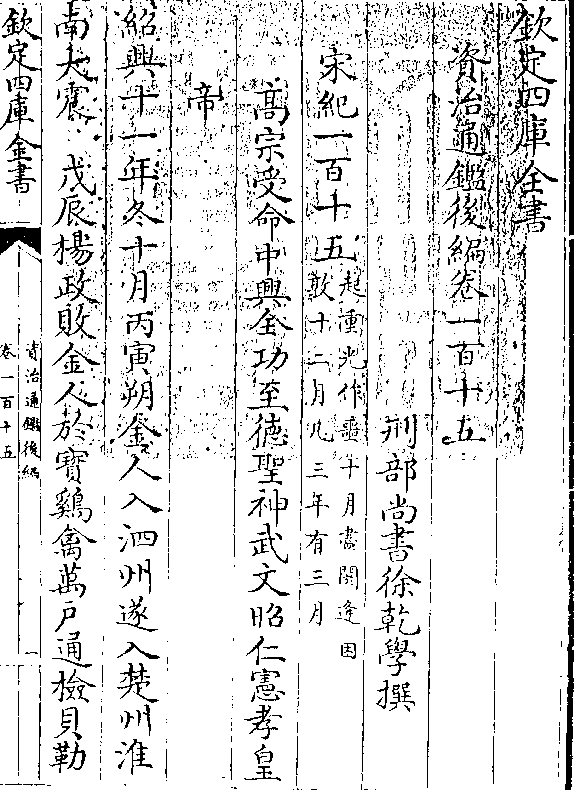 欽定四庫全書
資治通鑑後編卷一百十五
刑部尚書徐乾學撰
宋紀一百十五起重光作噩十月盡閼逢困敦十二月凡三年有三月
高宗受命中興全功至德聖神武文昭仁憲孝皇
帝
紹興十一年冬十月丙寅朔金人入泗州遂入楚州淮
南大震 戊辰楊政敗金人於寶鷄禽萬戶通檢貝勒
欽定四庫全書
資治通鑑後編
卷一百十五
一